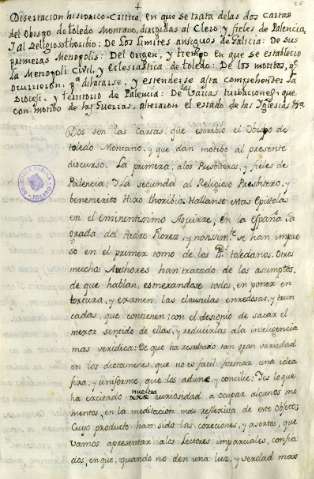 Disertacion historico-critica, en que se trata de las dos cartas
del Obispo de Toledo Montano, dirigidas al Clero, y fieles de Palencia,
I al Religioso thoribio: De los limites antiguos de Galicia: De sus
primeras Metropolis: Del Origen, y tiempo en que se establecio
la Metropoli civil, y eclesiastica de toledo: De los motivos, qe
ocurrieron, pa dilatarse, y estenderse asta comprehender la
Diocesi, y territorio de Palencia: De las varias turbaciones, que
con motivo de los Suevos, alteraron el estado de las Iglesias &c
Dos son las cartas, que escribio el Obispo de
toledo Montano, y que dan motivo al presente
discurso. La primera, a los Presbiteros, y fieles de
Palencia; I la segunda al Religioso Presbitero, y
benemerito Hijo thoribio. Hallanse estas Epistolas
en el eminentisimo Aguirre, en la España Sa
grada del Padre Florez, y se han impre
so en el primer tomo de los Ps toledanos. Otros
muchos Authores han tratado de los asumptos,
de que hablan, esmerandose todos, en poner en
tortura, y examen, las clausulas enredosas, y trun
cadas, que contienen; con el designio de sacar el
mejor sentido de ellas, y reducirlas a la inteligencia
mas veridica: De que ha resultado tan gran variedad
en los dictamenes, que no es facil formar una idea
fixa, y uniforme, que los adune, y concilie. Esto es lo que
ha excitado nuestra curiosidad a ocupar algunos mo
mentos, en la meditacion mas reflexiva de este objeto;
Cuyo producto han sido las correciones, y asertos, que
vamos apresentar a los Lectores imparciales, confia
dos, en que, quando no den una luz, y verdad mas